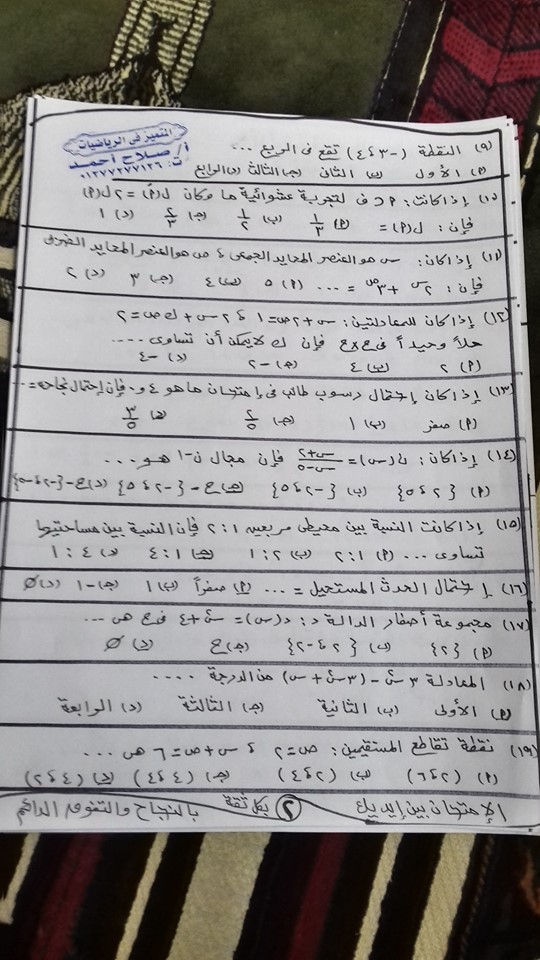 المتميز فى الرياضيات
أ/ صلاح أحمد
ت: ٠١٢٧٧٣٧٧١٣٦
(٩) النقطة (-٣ ، ٤) تقع فى الربع ...
(أ) الأول (ب) الثان (جـ) الثالث (د) الرابع
(١٠) إذا كانت: أ ⊂ ف لتجربة عشوائية ما وكان ل(أَ) = ٢ ل(أ)
فإن: ل(أ) = (أ) ١/٣ (ب) ١/٢ (جـ) ٢/٣ (د) ١
(١١) إذا كان: س هو العنصر المحايد الجمعى ، ص هو العنصر المحايد الضربى
فإن: ٢^س + ٣^ص = ... (أ) ٥ (ب) ٤ (جـ) ٣ (د) ٢
(١٢) إذا كان للمعادلتين: س + ٢ص = ١ ، ٢س + ك ص = ٢
حلاً وحيداً فى ح×ح فإن ك لا يمكن أن تساوى ....
(أ) ٢ (ب) ٤ (جـ) -٢ (د) -٤
(١٣) إذا كان إحتمال رسوب طالب فى إمتحان ما هو ٤و٠ فإن إحتمال نجاحه = ...
(أ) صفر (ب) ١ (جـ) ٢/٥ (د) ٣/٥
(١٤) إذا كان: ن(س) = س+٢/س-٥ فإن مجال ن^-١ هو ...
(أ) {٢ ، ٥} (ب) {-٢ ، ٥} (جـ) ح - {-٢ ، ٥} (د) ح - {-٢ ، -٥}
(١٥) إذا كانت النسبة بين محيطى مربعين ١ : ٢ فإن النسبة بين مساحتيها
تساوى ... (أ) ١ : ٢ (ب) ٢ : ١ (جـ) ١ : ٤ (د) ٤ : ١
(١٦) إحتمال الحدث المستحيل = ... (أ) صفراً (ب) ١ (جـ) -١ (د) ∅
(١٧) مجموعة أصفار الدالة د: د(س) = س² + ٤ فى ح هى ...
(أ) {٢} (ب) {٢ ، -٢} (جـ) ح (د) ∅
(١٨) المعادلة من الدرجة ....
(أ) الأولى (ب) الثانية (جـ) الثالثة (د) الرابعة
(١٩) نقطة تقاطع المستقيمين: ص = ٢ ، س + ص = ٦ هى ...
(أ) (٢ ، ٦) (ب) (٢ ، ٤) (جـ) (٤ ، ٤) (د) (٤ ، ٢)
الإمتحان بين إيديك ٢ بكل ثقة بالنجاح والتفوق الدائم